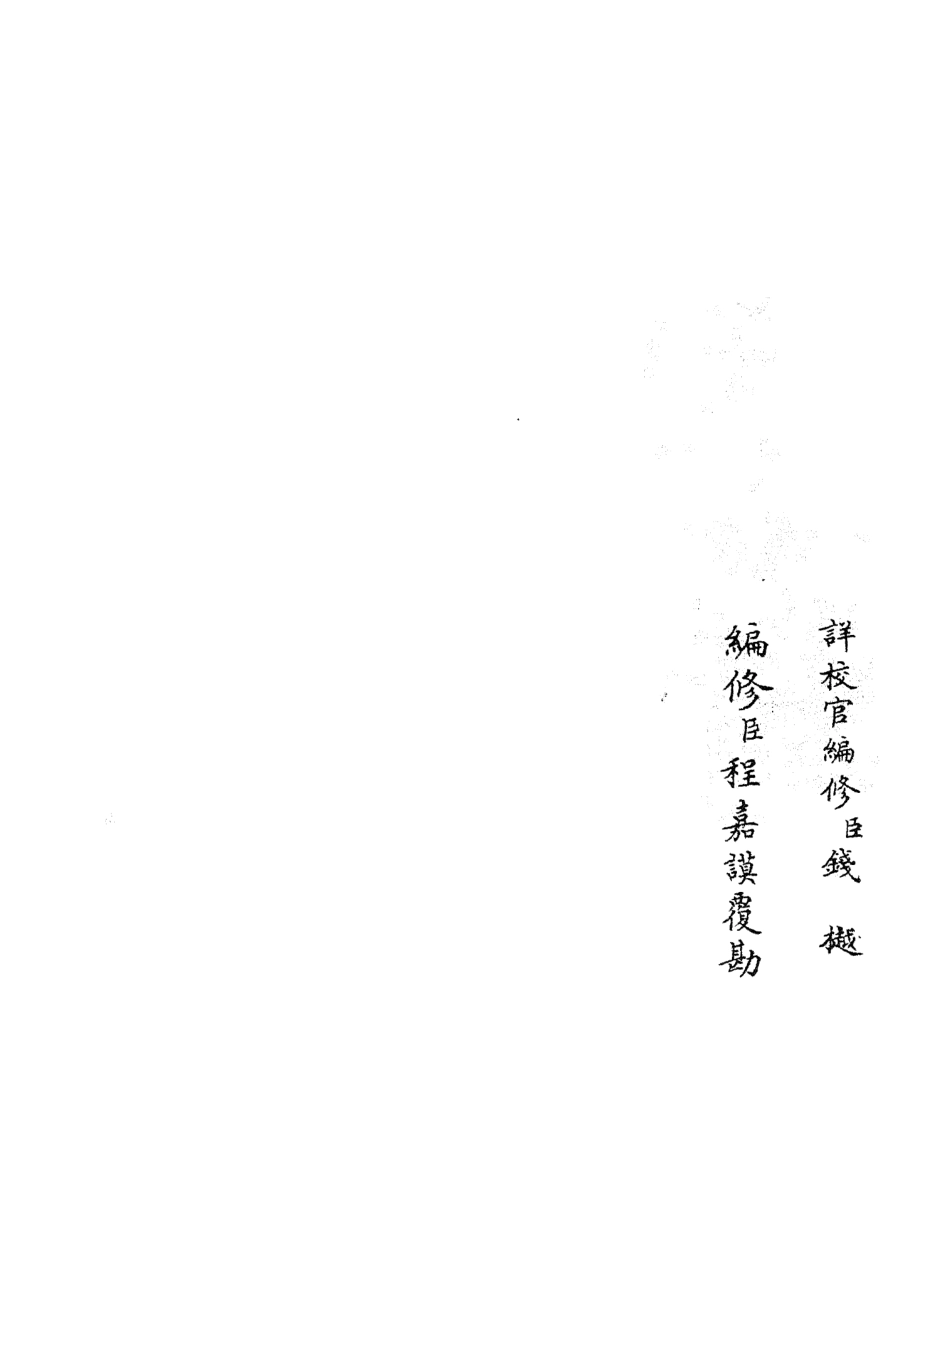 詳校官編修臣錢樾
編修臣程嘉謨覆勘